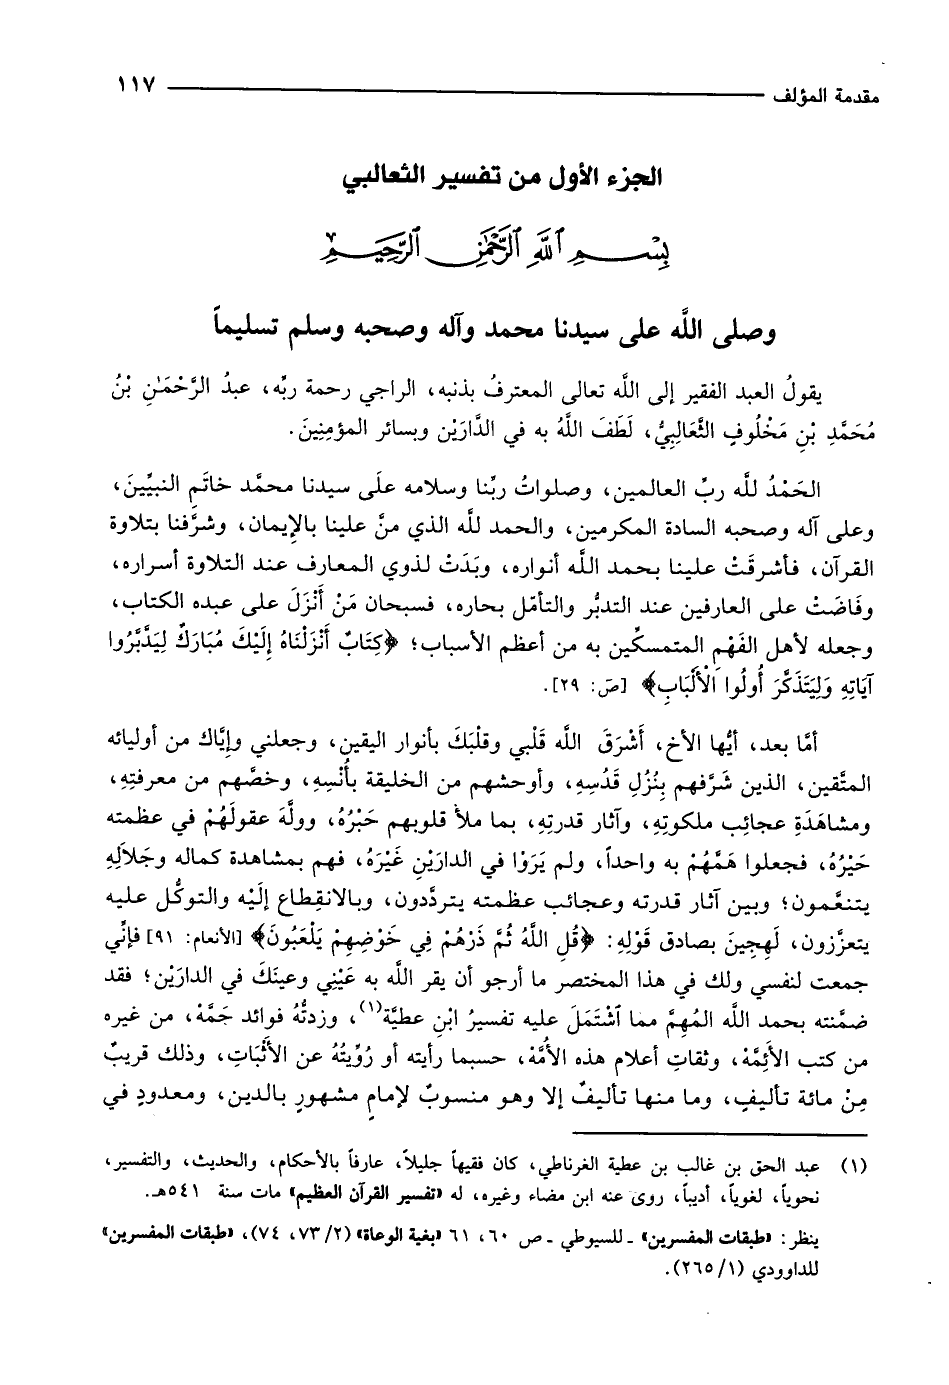 مقدمة المؤلف ١١٧
الجزء الأول من تفسير الثعالبي
بِسْمِ ٱللَّهِ ٱلرَّحْمَٰنِ ٱلرَّحِيمِ
وصلى اللَّه على سيدنا محمد وآله وصحبه وسلم تسليماً
يقولُ العبد الفقير إلى اللَّه تعالى المعترفُ بذنبه، الراجي رحمة ربِّه، عبدُ الرَّحْمَـٰنِ بْنُ
مُحَمَّدِ بْنِ مَخْلُوفٍ الثَّعَالِبِيُّ، لَطَفَ اللَّهُ به في الدَّارَيْن وبسائر المؤمِنِينَ.
الحَمْدُ للَّه ربِّ العالمين، وصلواتُ ربِّنا وسلامه علَى سيدنا محمَّد خاتَمِ النبيِّينَ،
وعلى آله وصحبه السادة المكرمين، والحمد للَّه الذي منَّ علينا بالإِيمان، وشرَّفنا بتلاوة
القرآن، فأشرقَتْ علينا بحمد اللَّه أنواره، وبَدَتْ لذوي المعارف عند التلاوة أسراره،
وفَاضَتْ على العارفين عند التدبُّر والتأمّل بحاره، فسبحان مَنْ أَنْزَلَ على عبده الكتاب،
وجعله لأهل الفَهْمِ المتمسكِّين به من أعظم الأسباب؛ ﴿كِتَابٌ أَنْزَلْنَاهُ إِلَيْكَ مُبَارَكٌ لِيَدَّبَّرُوا
آيَاتِهِ وَلِيَتَذَكَّرَ أُولُوا الْأَلْبَابِ﴾ [صَ: ٢٩].
أمَّا بعد، أيُّها الأخ، أَشْرَقَ اللَّه قَلْبي وقلْبَكَ بأنوار اليقين، وجعلني وإيَّاك من أوليائه
المتَّقين، الذين شَرَّفهم بِنُزُلِ قَدُسِهِ، وأوحشهم من الخليقة بأُنْسِهِ، وخصَّهم من معرفتِهِ،
ومشاهَدَةِ عجائِب ملكوتِهِ، وآثار قدرتِهِ، بما ملأ قلوبهم حَبْرُهُ، وولَّهَ عقولَهُمْ في عظمته
حَيْرُهُ، فجعلوا هَمَّهُمْ به واحداً، ولم يَرَوْا في الدارَيْنِ غَيْرَهُ، فهم بمشاهدة كماله وجَلاَلِهِ
يتنعَّمون؛ وبين آثار قدرته وعجائب عظمته يتردَّدون، وبالانقِطاع إلَيْه والتوكُّل عليه
يتعزَّزون، لَهِجِينَ بصادق قَوْلِهِ: ﴿قُلِ اللَّهُ ثُمَّ ذَرْهُمْ فِي خَوْضِهِمْ يَلْعَبُونَ﴾ [الأنعام: ٩١] فإِنِّي
جمعت لنفسي ولك في هذا المختصر ما أرجو أن يقر اللَّه به عَيْنِي وعينَكَ في الدارَيْن؛ فقد
ضمَّنته بحمد اللَّه المُهِمَّ مما ٱشْتَمَلَ عليه تفسيرُ ابْنِ عطيَّة(١)، وزدتُّهُ فوائد جَمَّهْ، من غيره
من كتب الأَئِمَّهْ، وثقاتِ أعلام هذه الأُمَّهْ، حسبما رأيته أو رُوِّيتُهُ عن الأَثْبَاتِ، وذلك قريبٌ
مِنْ مائة تأليفٍ، وما منها تأليفٌ إلا وهو منسوبٌ لإِمام مشهورٍ بالدين، ومعدودٍ في
(١) عبد الحق بن غالب بن عطية الغرناطي، كان فقيهاً جليلاً، عارفاً بالأحكام، والحديث، والتفسير،
نحوياً، لغوياً، أديباً، روى عنه ابن مضاء وغيره، له «تفسير القرآن العظيم» مات سنة ٥٤١هـ.
ينظر: «طبقات المفسرين» ـ للسيوطي ـ ص ٦٠، ٦١ «بغية الوعاة» (٢/ ٧٣، ٧٤)، «طبقات المفسرين»
للداوودي (١/ ٢٦٥).